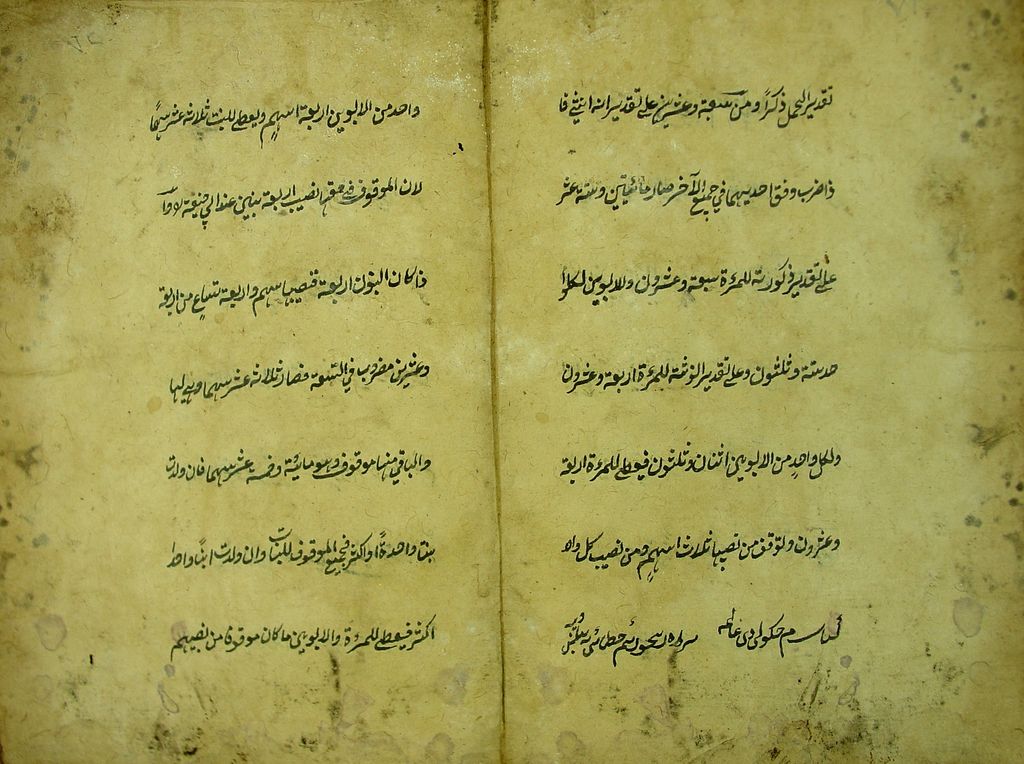 تقدير الحمل ذكرًا ومن سبعة وعشرين على تقدير انه انثى فا
ذا ضرب وفق احديهما في جميع الآخر صار مائتين وستة عشر
على تقدير ذكورته للمرءة سبعة وعشرون وللابوين لكل وا
حد ستة وثلثون وعلى تقدير انوثته للمرءة اربعة وعشرون
ولكل واحدٍ من الابوين اثنان وثلثون فيعطى للمرءة اربعة
وعشرون وتوقف من نصيبها ثلاث اسهمٍ ومن نصيب كل وا
واحد من الابوين اربعة اسهمٍ ويعطى للبنت ثلاثة عشر سهمًا
لان الموقوف في حقها نصيب اربعة بنين عند ابي حنيفة
ذا كان البنون اربعة فنصيبها سهم واربعة تساعٍ من اربعة
وعشرين مضروب في التسعة فصار ثلاثة عشر سهما وهي لها
والباقي منها موقوف وهو مائة وخمسة عشر سهما فان ولدت
بنتا واحدةً او اكثر فجميع الموقوف للبنات وان ولدت ابنًا واحدا
اكثر فيعطى للمرءة والابوين ما كان موقوفا من نصيبهم